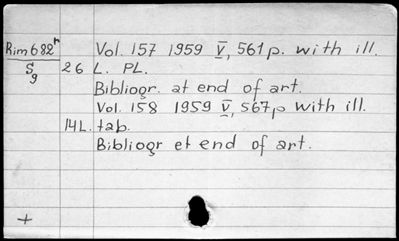 Rim 682r Vol. 157 1959 V, 561 p. with ill.
S 26 L. PL.
g
Bibliogr. at end of art.
Vol. 158 1959 V, 567 p with ill.
14 L. tab.
Bibliogr et end of art.
+